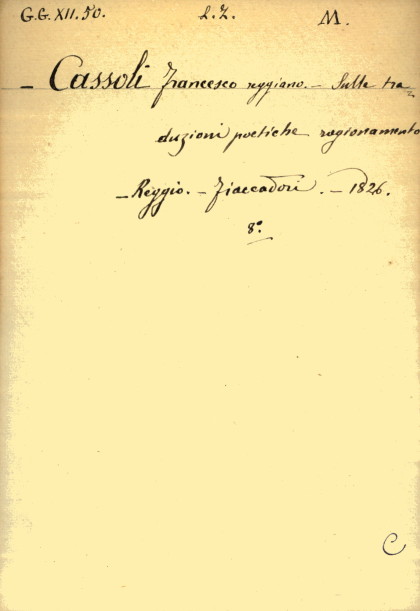 G.G. XII. 50. L.Z. M.
— Cassoli Francesco reggiano. — Sulle tra=
duzioni poetiche ragionamento
— Reggio. — Fiaccadori. — 1826.
8.°
C